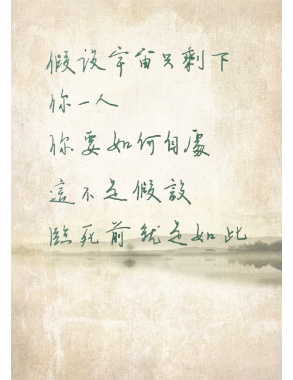 假设宇宙只剩下
你一人
你要如何自處
這不是假設
臨死前就是如此